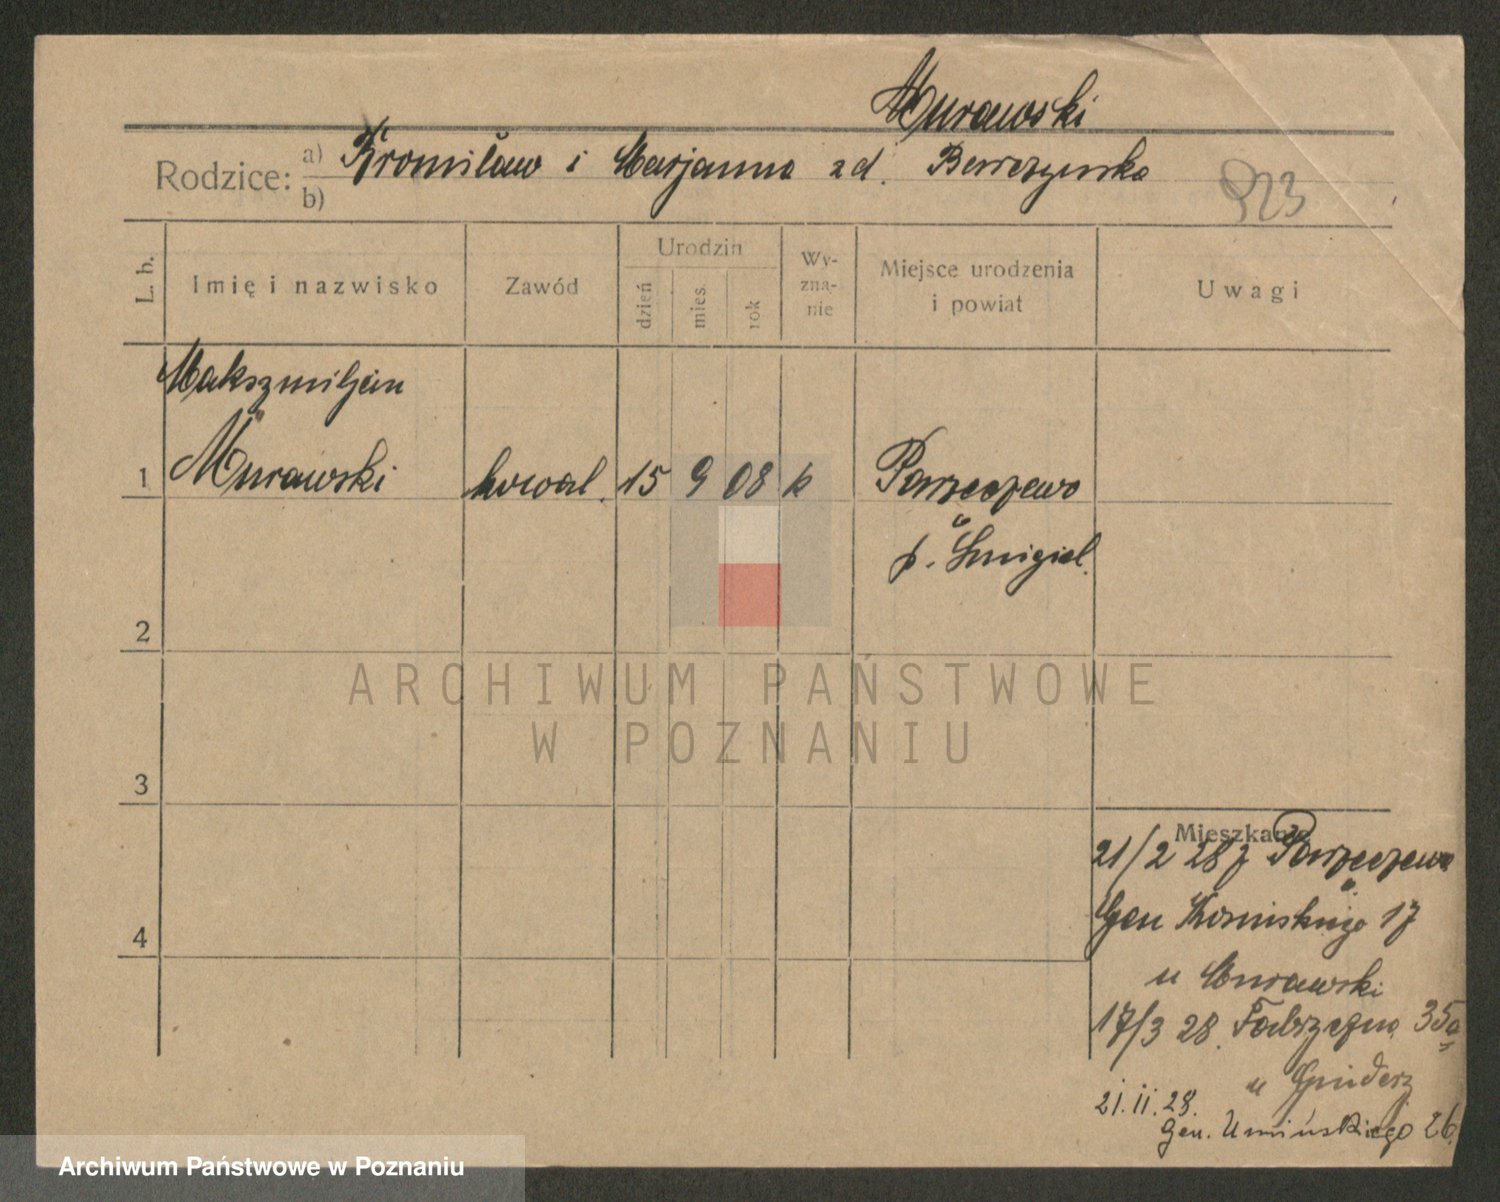 Murawski
Rodzice: a) Bronisław i Marjanna zd.
b)
923
L. b.
Imię i nazwisko
Zawód
Urodzin
dzień
mies.
rok
Wy-
zna-
nie
Miejsce urodzenia
i powiat
Uwagi
Maksymiljan
1 Murawski kowal. 15 9 08 k Parzęczewo
p. Śmigiel.
2
3
4
Mieszkanie
21/2 28 z Parzęczewa
Gen 17
u Murawski
17/3 28. Fabryczna 35a
u
21.11.28.
Gen. Umińskiego 26
ARCHIWUM PAŃSTWOWE
W POZNANIU
Archiwum Państwowe w Poznaniu